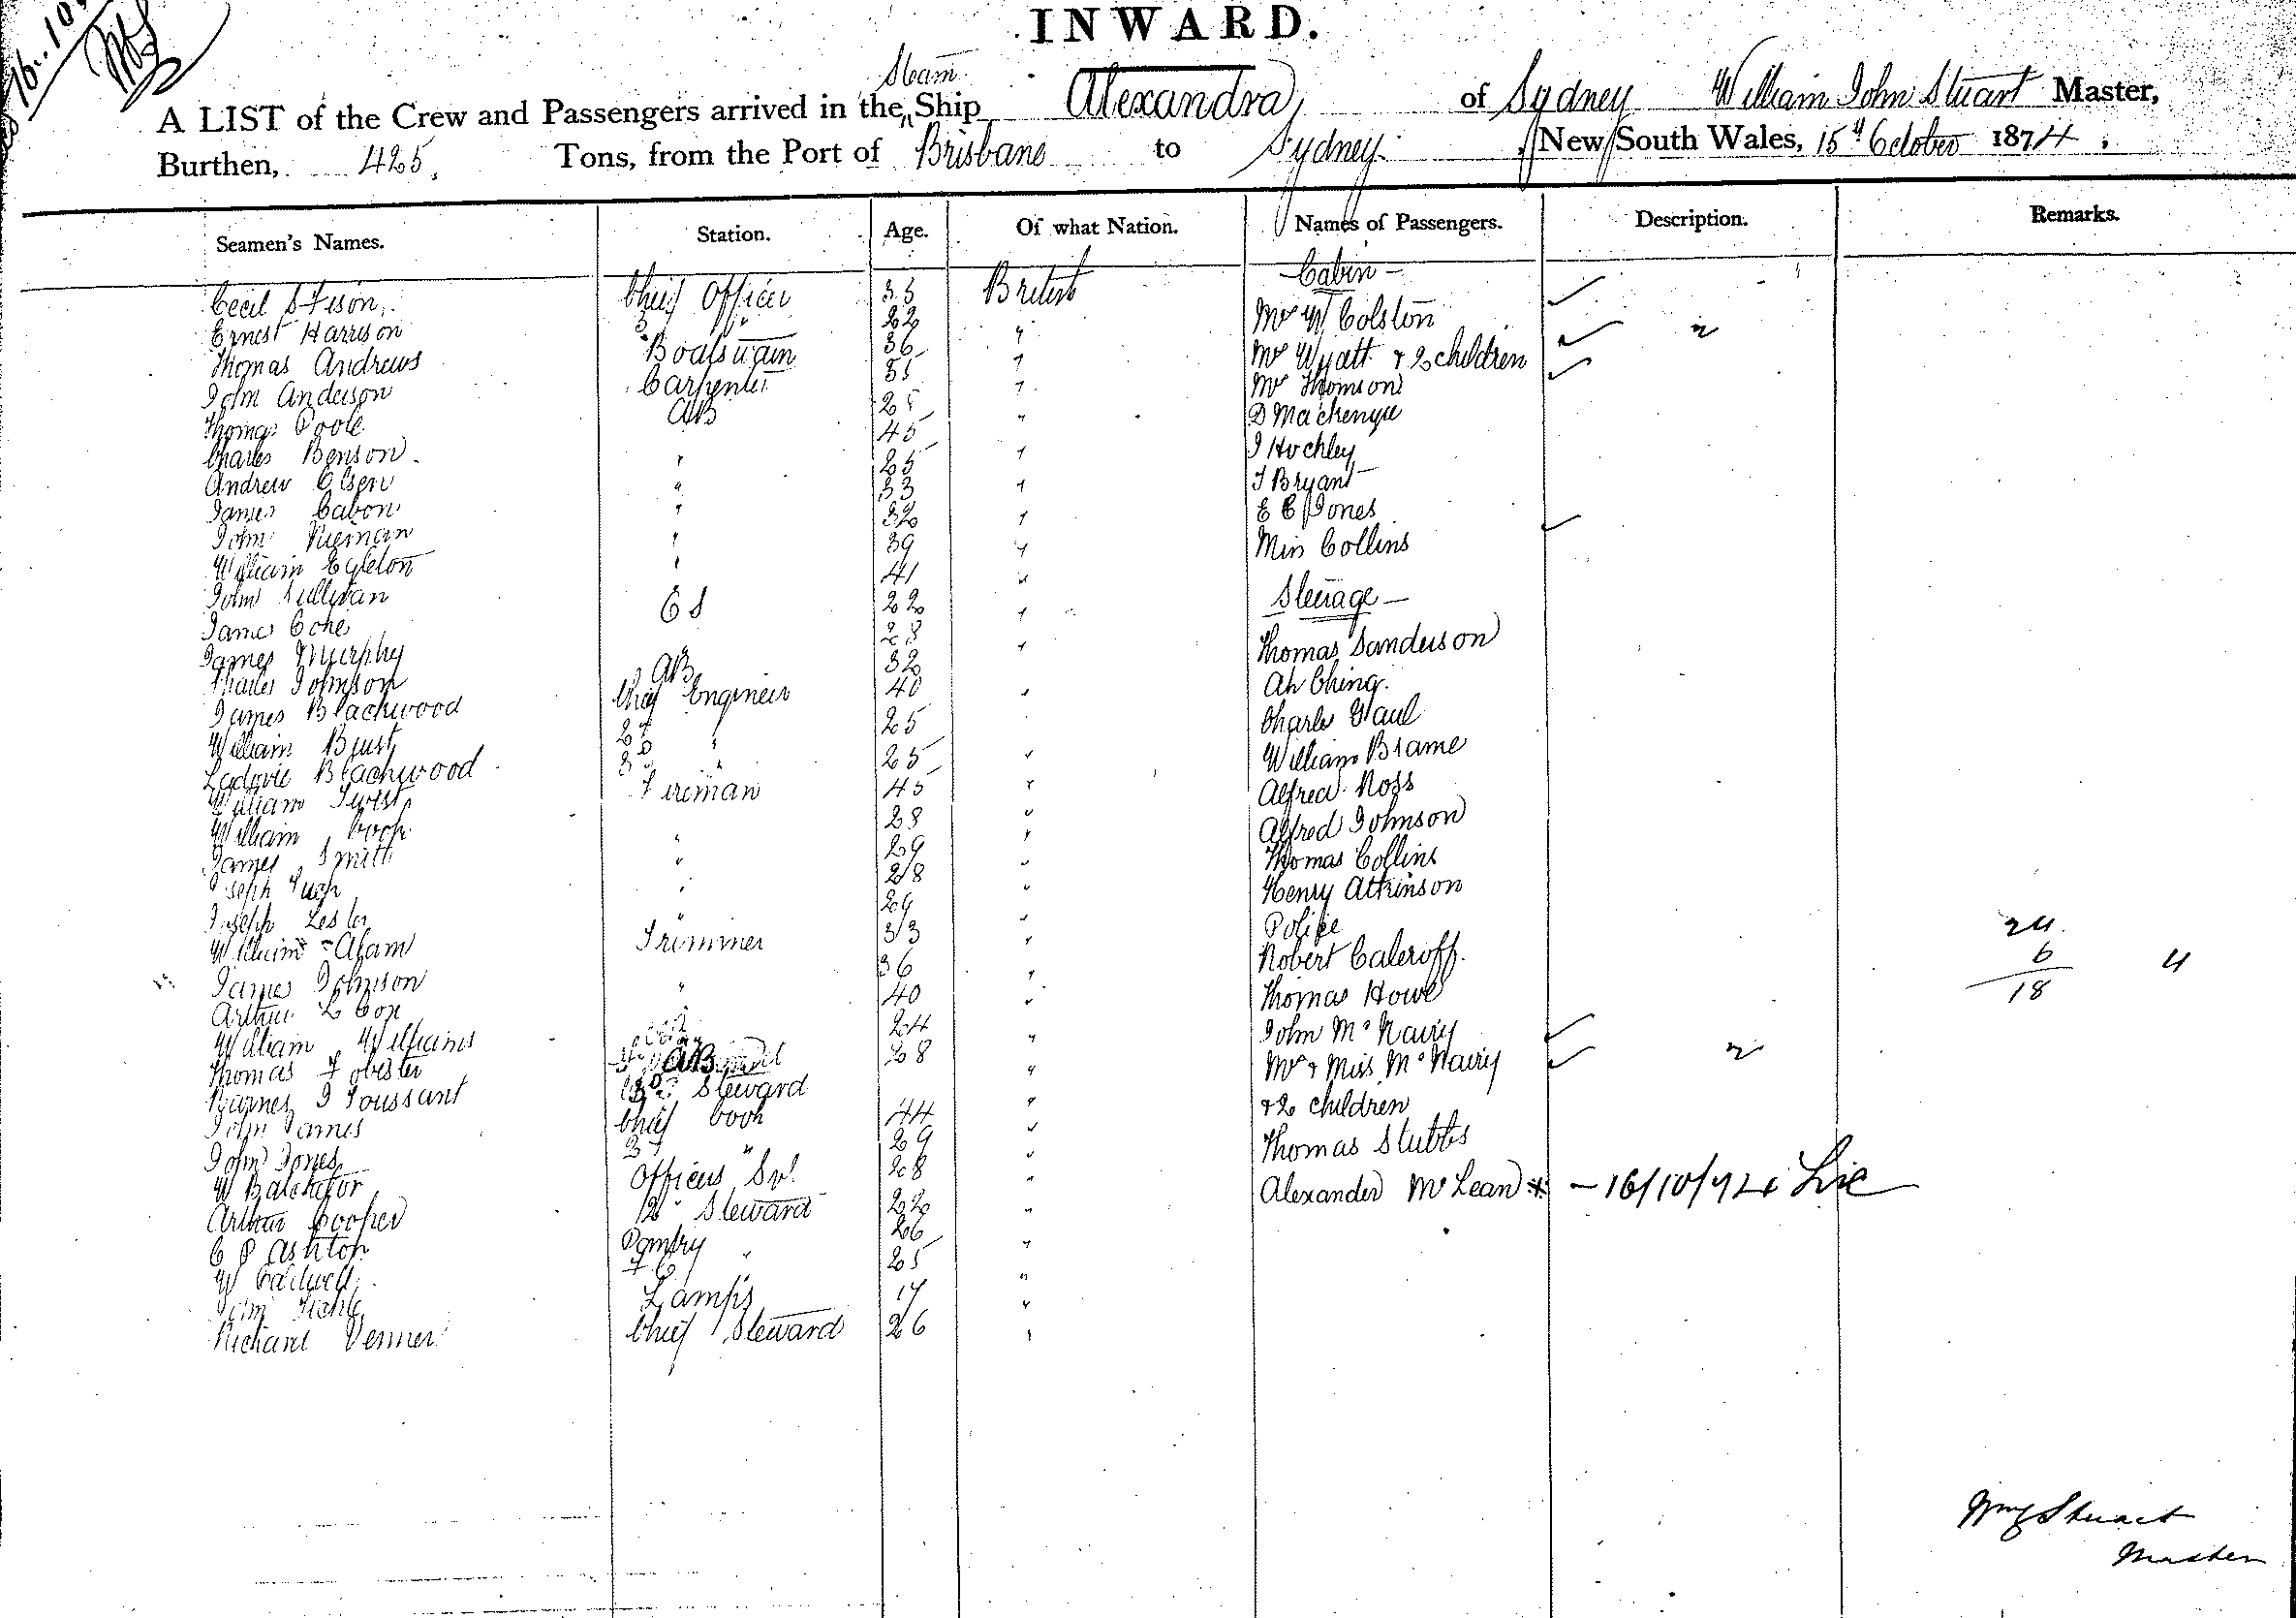 INWARD.
A LIST of the Crew and Passengers arrived in the Steam Ship Alexandra of Sydney William John Stuart Master,
Burthen, 425, Tons, from the Port of Brisbane to Sydney. New South Wales, 15th October 1874.
Seamen's Names. Station. Age. Of what Nation. Names of Passengers. Description. Remarks.
Cabin —
Cecil Chief Officer 35 British Mr W Colston
Ernest Harrison 3 " 22 " Mr Wyatt & 2 children
Thomas Andrews Boatswain 36 " Mr Thomson
John Anderson Carpenter " D Mackenzie
Thomas Poole AB 25 " J Hockley
Charles Benson " 45 " J Bryant
Andrew Olsen " 25 " E C Jones
James Cabon " 33 " Miss Collins
John " 32 "
William Egleton " 39 " Steerage —
John Sullivan 41 "
James OS 22 " Thomas Sanderson
James Murphy 28 " Ah Ching.
Charles Johnson AB 32 Charles Gaul
James Blackwood Chief Engineer 40 " William Brame
William Bust 2d " 25 Alfred Ross
Blackwood 3d " 25 " Alfred Johnson
William Fireman 45 " Thomas Collins
William Cook " 28 " Henry Atkinson
James Smith " 29 " Police
Joseph Pugh " 28 " Robert
Joseph Lester " 29 " Thomas Howe
William Adam Trimmer 33 " John McNairy
James Johnson " 36 " Mrs & Miss McNairy
Arthur L Cox " 40 " & 2 children
William Williams 24 " Thomas Stubbs
Thomas Fobister AB 28 " Alexander McLean * — 16/10/74
Barnes J Toussant Steward "
John James Chief Cook 44 "
John Jones 2d " 29 "
W Officers Sv. 28 "
Arthur Cooper 2d Steward 22 "
C P Ashton Pantry " 26 "
W 25 "
John Lamps 17 "
Richard Venner Chief Steward 26 "
24
6
18
4
Wm J Stuart
Master